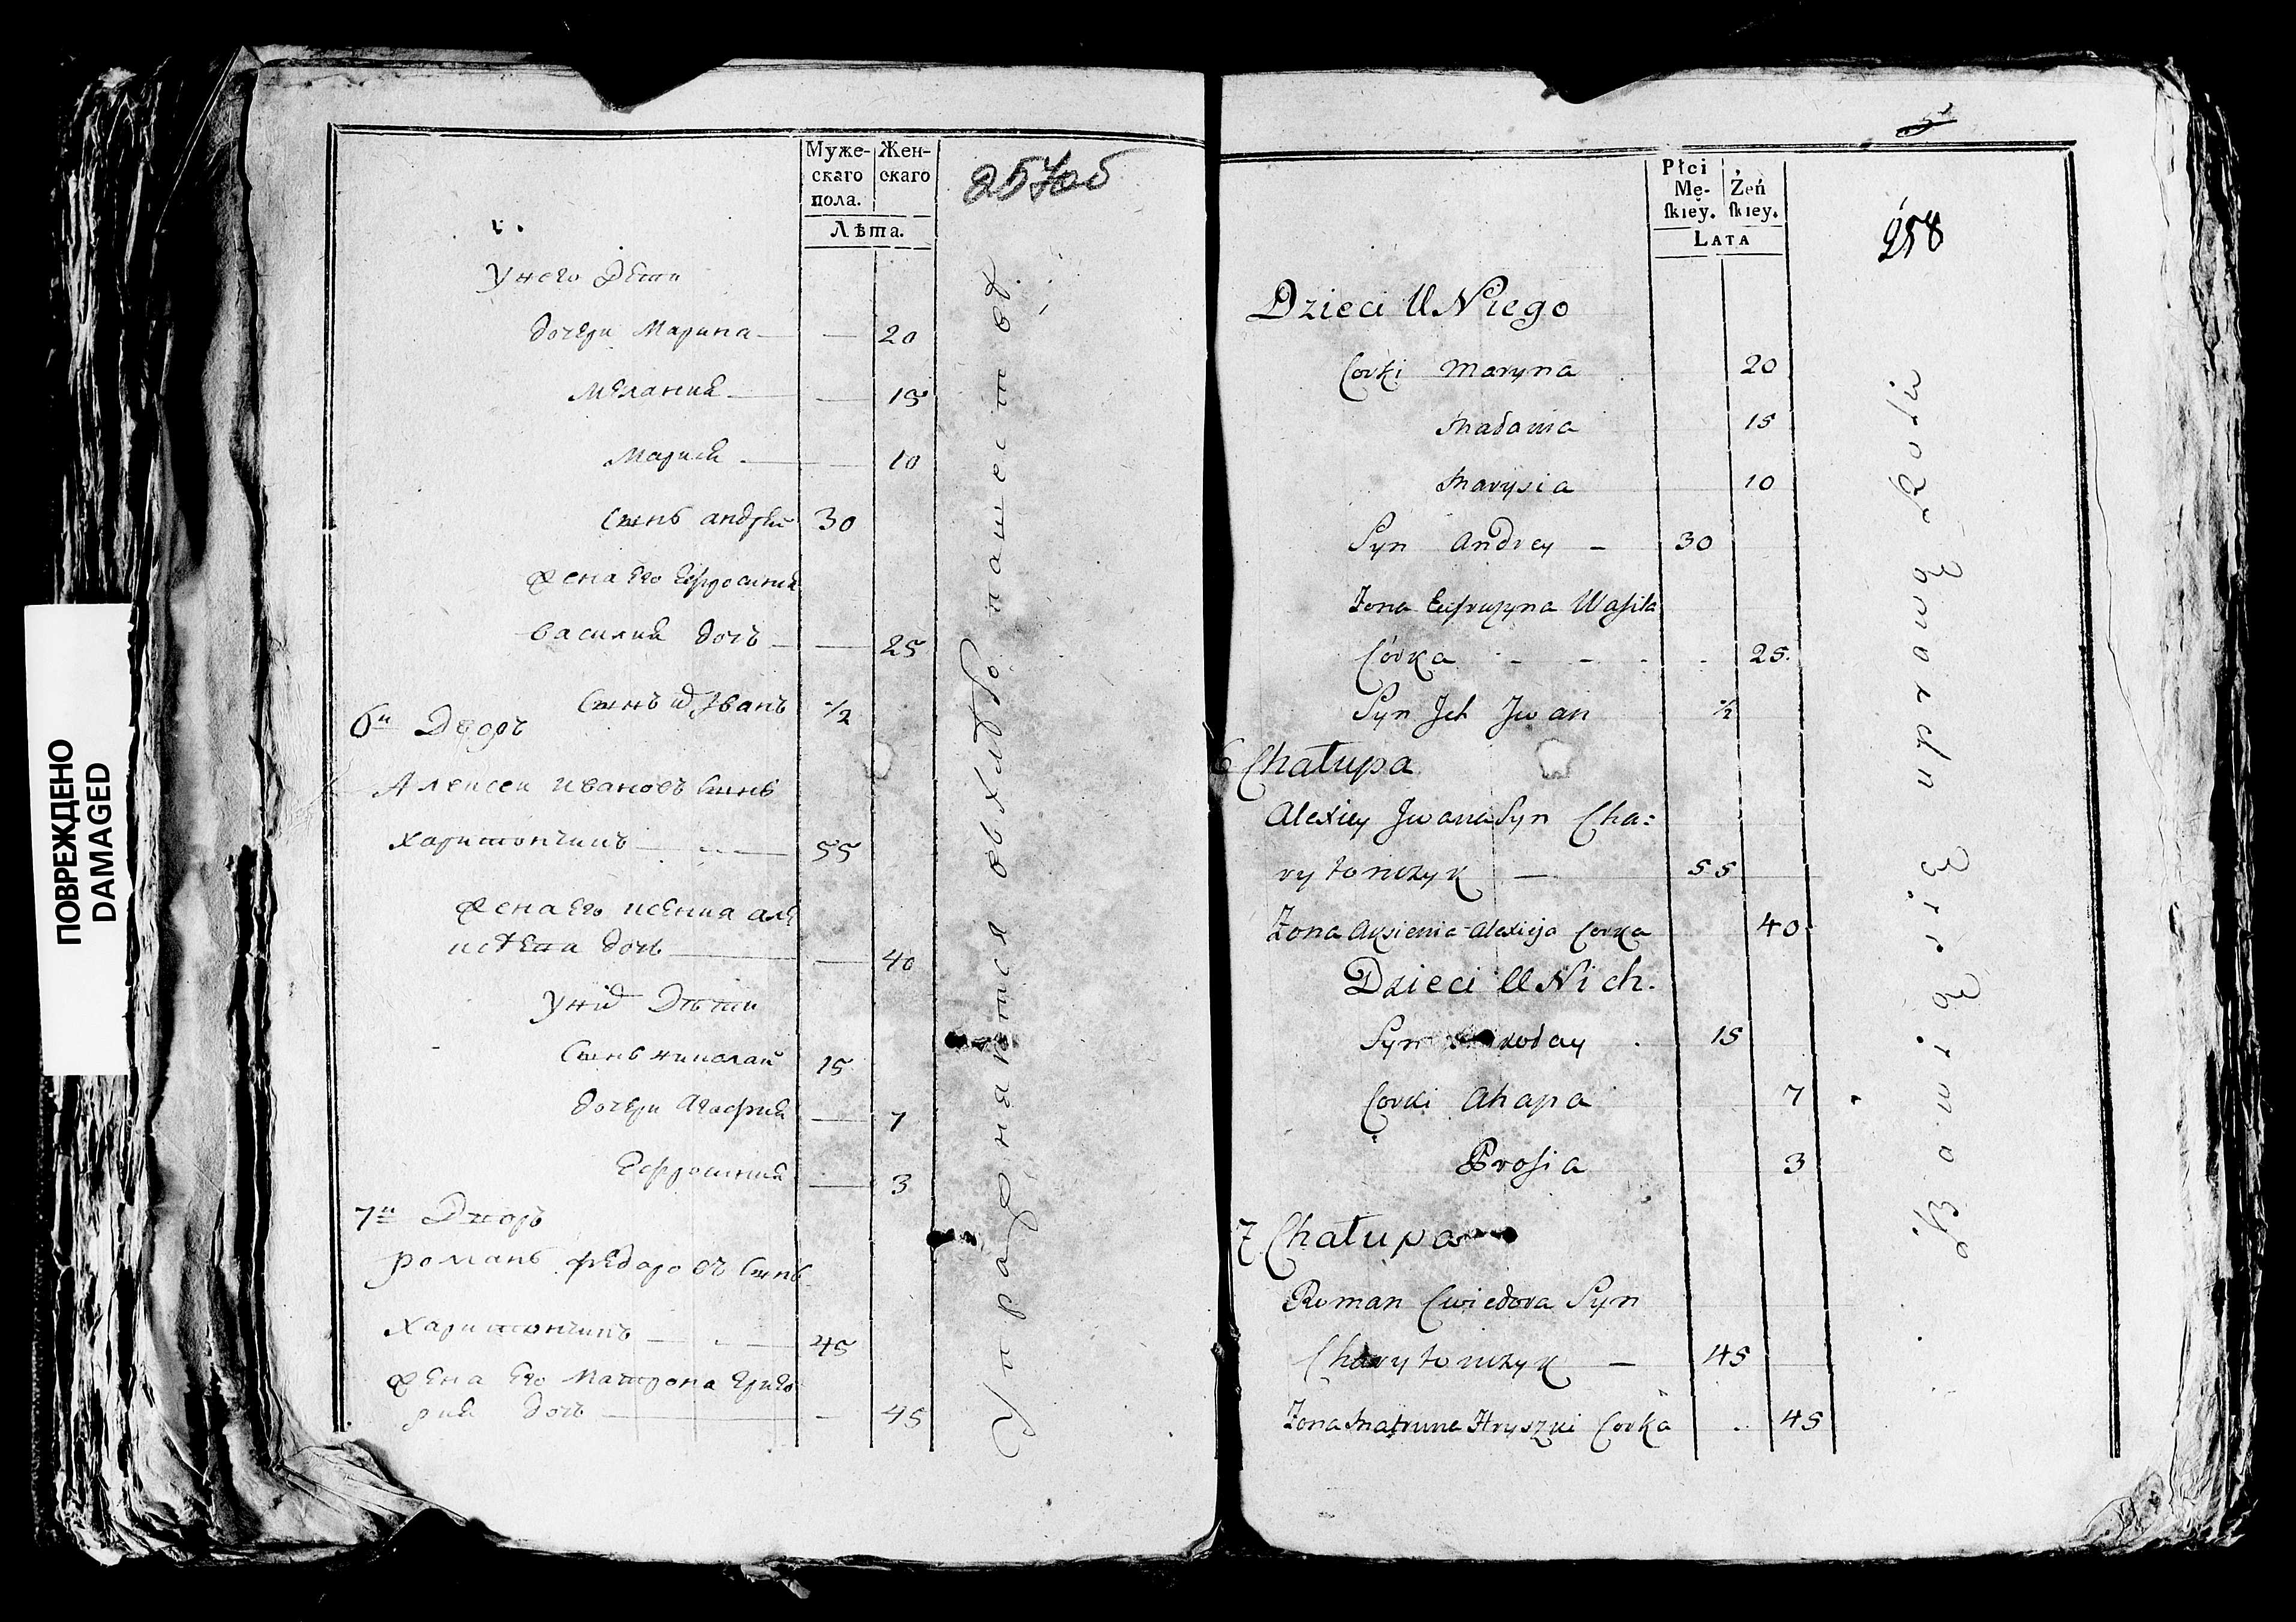 ПОВРЕЖДЕНО
DAMAGED
Муже-
скаго
пола.
Жен-
скаго
Лѣта.
257об
У него Дети
дочери Марина — — 20
Мелания — — 15
Марися — — 10
Сынъ андрей 30
Жена Его Ефросиния
василия дочь — — 25
Сынъ их Иванъ ½
6й Дворъ
Алексеи ивановъ Сынъ
харитончикъ — 55
Жена Его ксения але
ксѣева дочь — — 40
У них Дѣти
Сынъ николай 15
дочери Агафия — 7
Ефросиния — 3
7й Дворъ
романъ федоровъ Сынъ
харитончикъ — 45
Жена Его Матрона григо
рия дочь — — 45
Упражняются въ хлѣбопашествѣ.
5
Płci
Mę-
ſkiey.
Żeń
ſkiey.
LATA
258
Dzieci U Niego
Corki Maryna 20
Małania 15
Marysia 10
Syn Andrey — 30
Zona Eufruzyna Waſila
Córka - - - 25.
Syn Jch Jwan ½
6 Chałupa
Alexiey Jwana Syn Cha:
rytonczyk — 55
Zona Aksienia Alexieja Corka 40
Dzieci U Nich.
Syn 15
Corki Ahapa 7
Proſia 3
7 Chałupa
Roman Cwiedora Syn
Charytonczyk — 45
Zona Matruna Hryszki Corka 45
Bawią się uprawą Roli